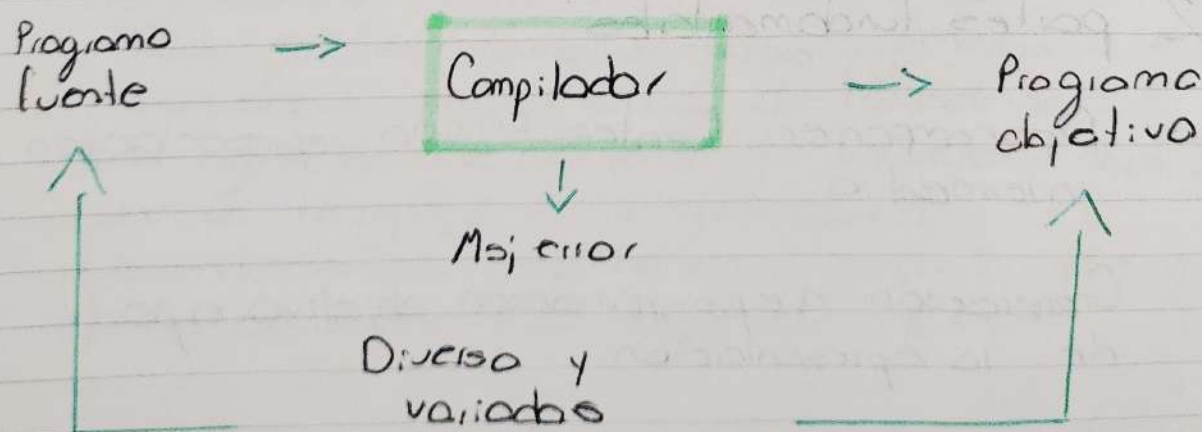 Programa
fuente
Compilador
Programa
objetivo
Msj error
Diverso y
variados